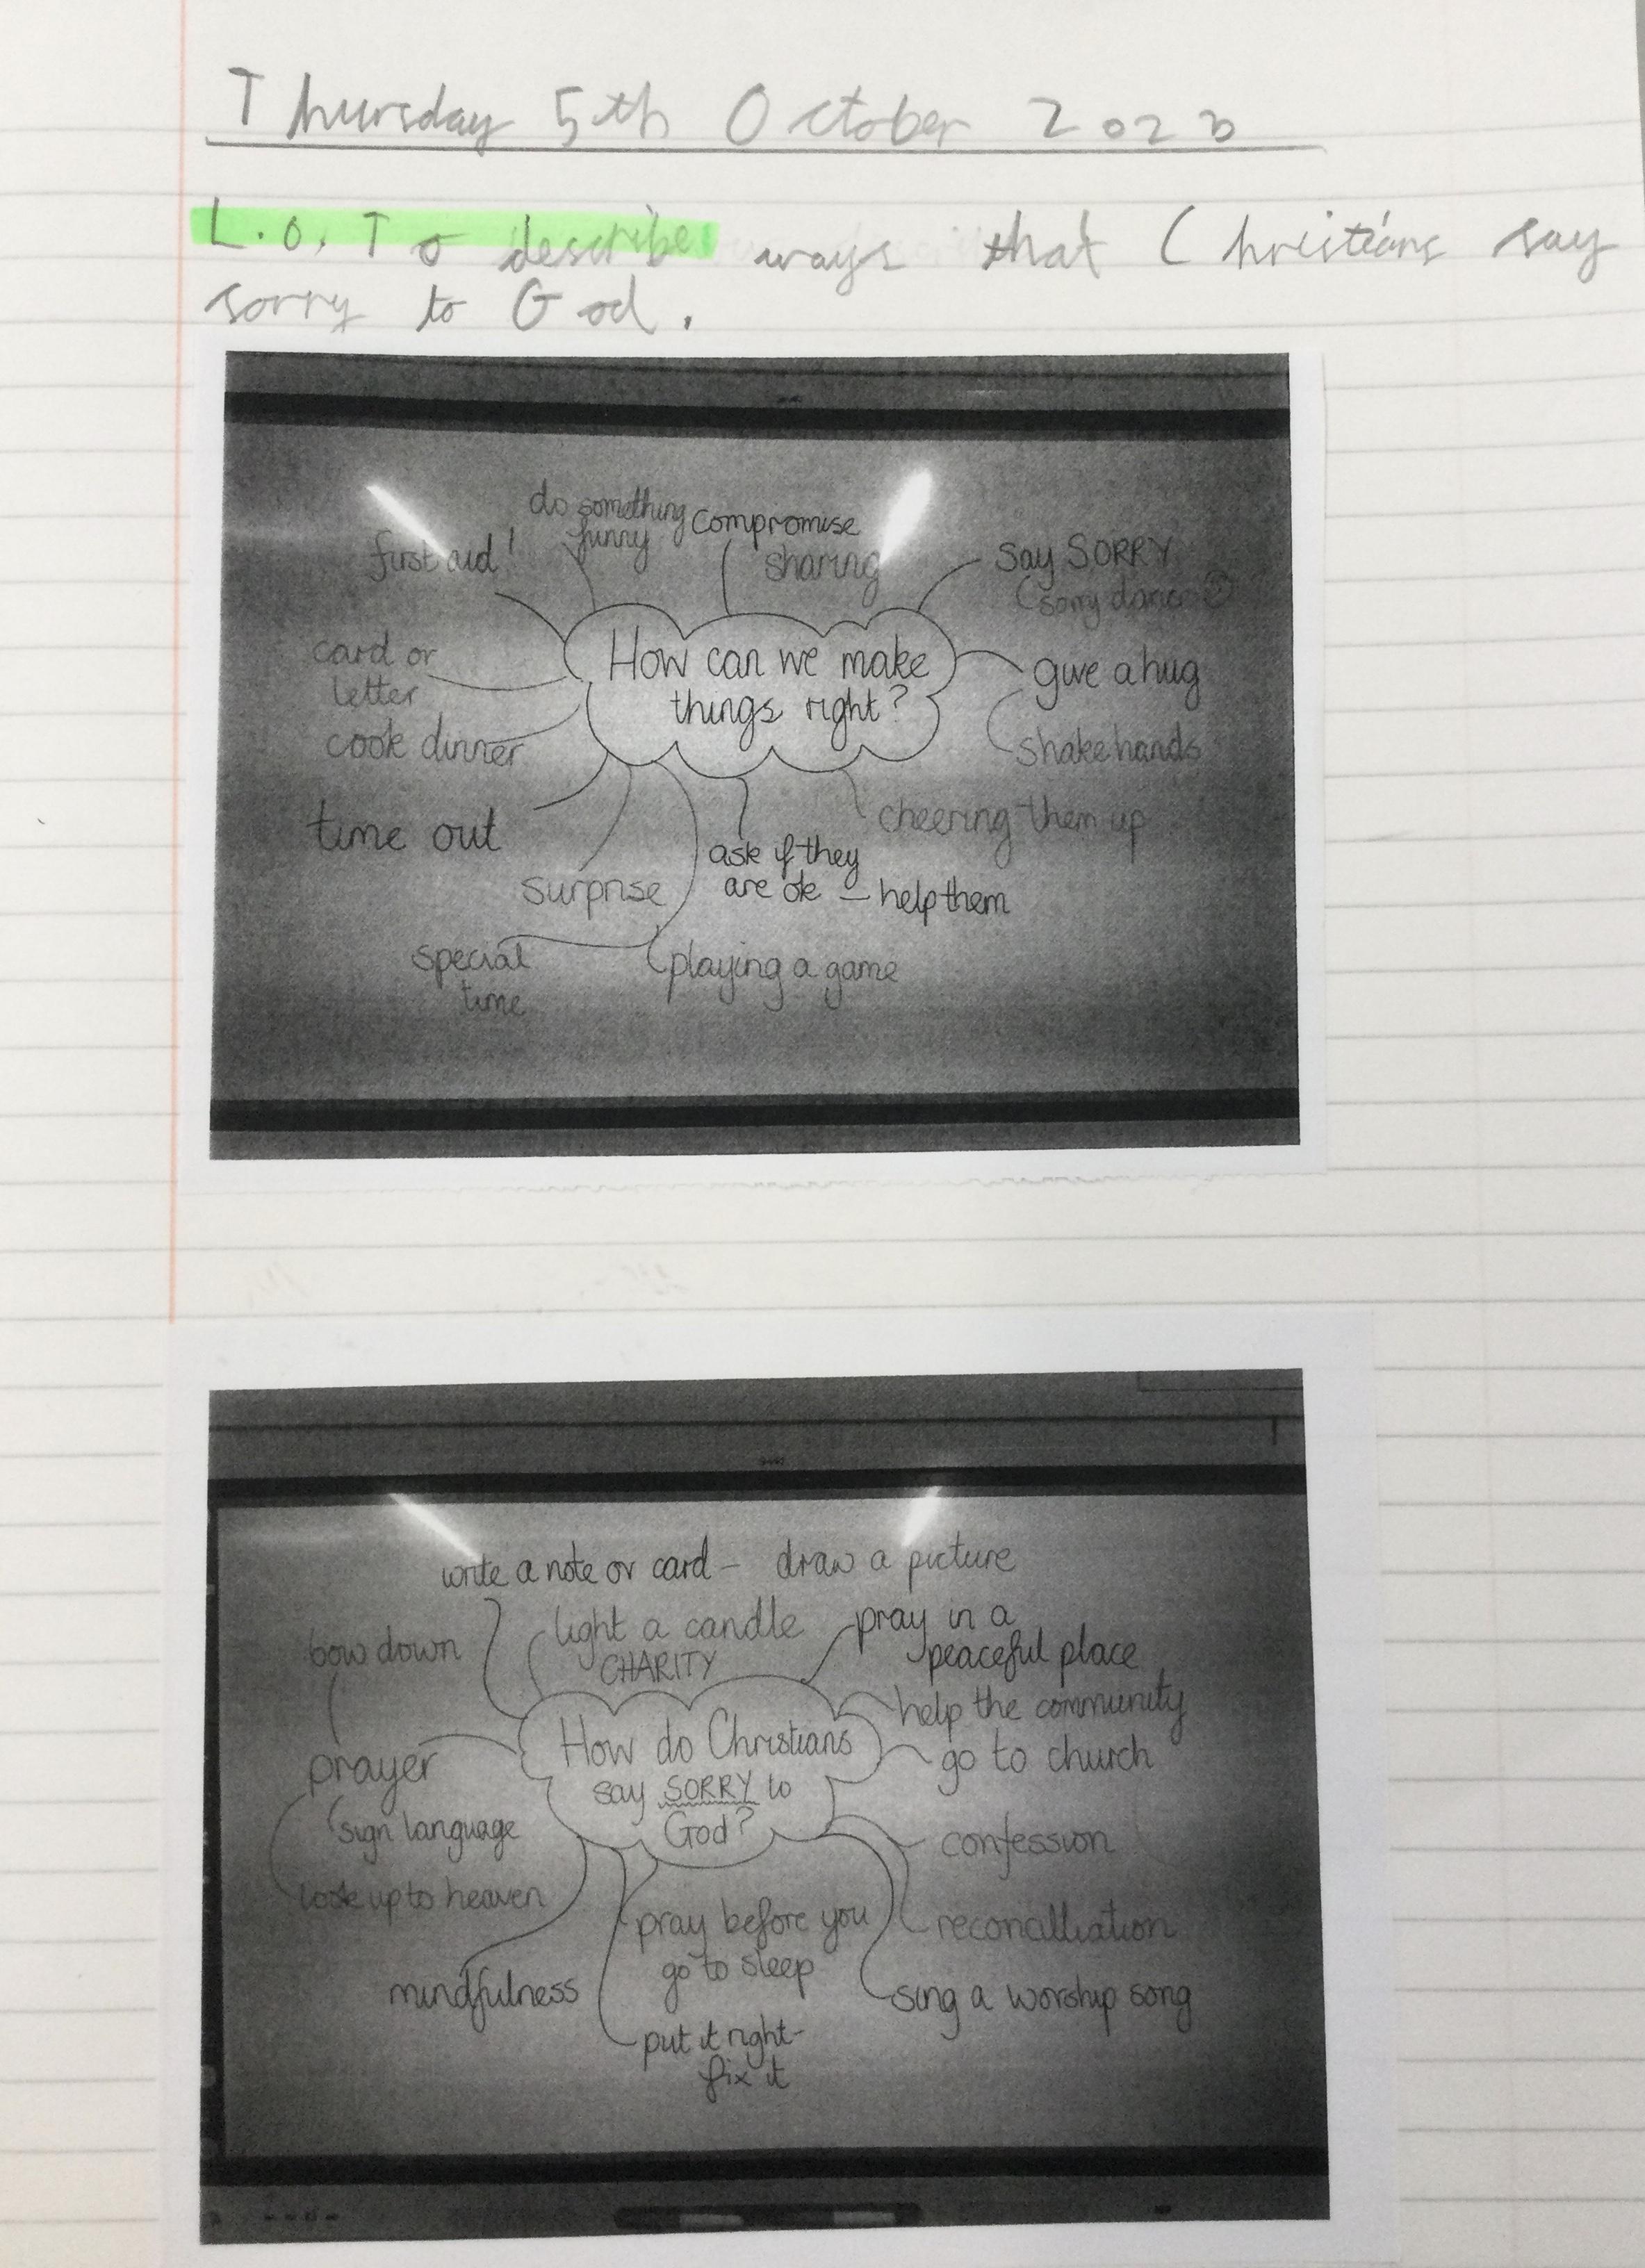 Thursday 5th October 2023
L.O. To describe ways that Christians say
sorry to God.
do something
funny
compromise
sharing
first aid!
Say SORRY
(sorry dance ☺)
card or
letter
How can we make
things right?
give a hug
shake hands
cook dinner
time out
cheering them up
surprise
ask if they
are ok – help them
special
time
playing a game
write a note or card – draw a picture
bow down
light a candle
CHARITY
pray in a
peaceful place
help the community
go to church
prayer
How do Christians
say SORRY to
God?
sign language
confession
look up to heaven
pray before you
go to sleep
reconcilliation
mindfulness
sing a worship song
put it right-
fix it